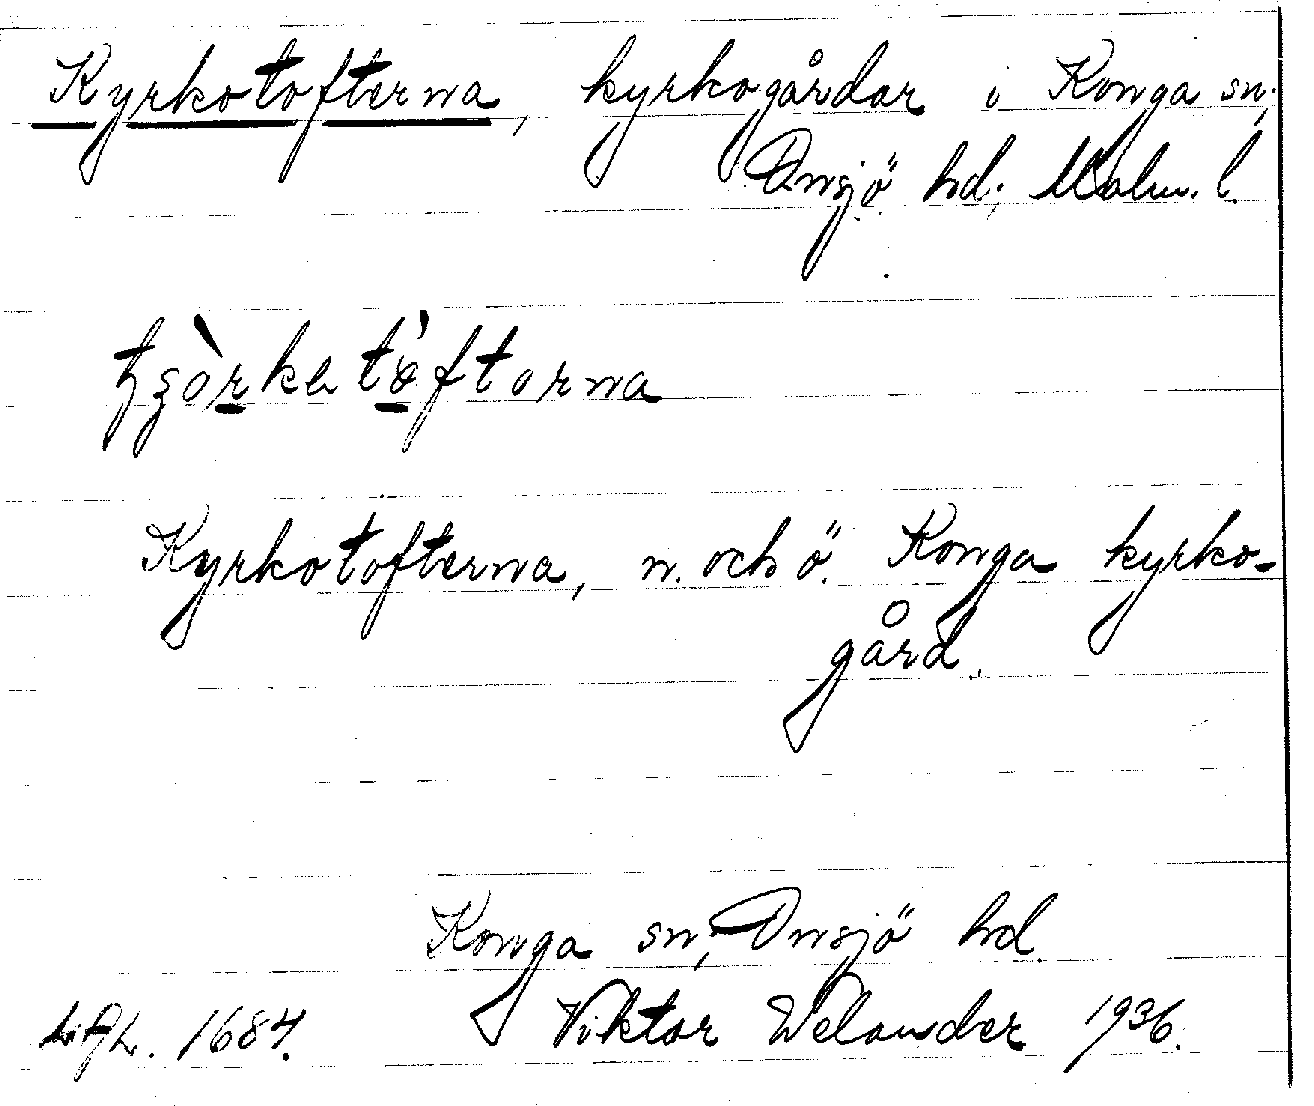 Kyrkotofterna, kyrkogårdar i Konga sn,
Onsjö hd, Malm. l.
Kyrkotofterna, n. och ö. Konga kyrko-
gård.
Konga sn, Onsjö hd.
1684. Viktor Welander 1936.